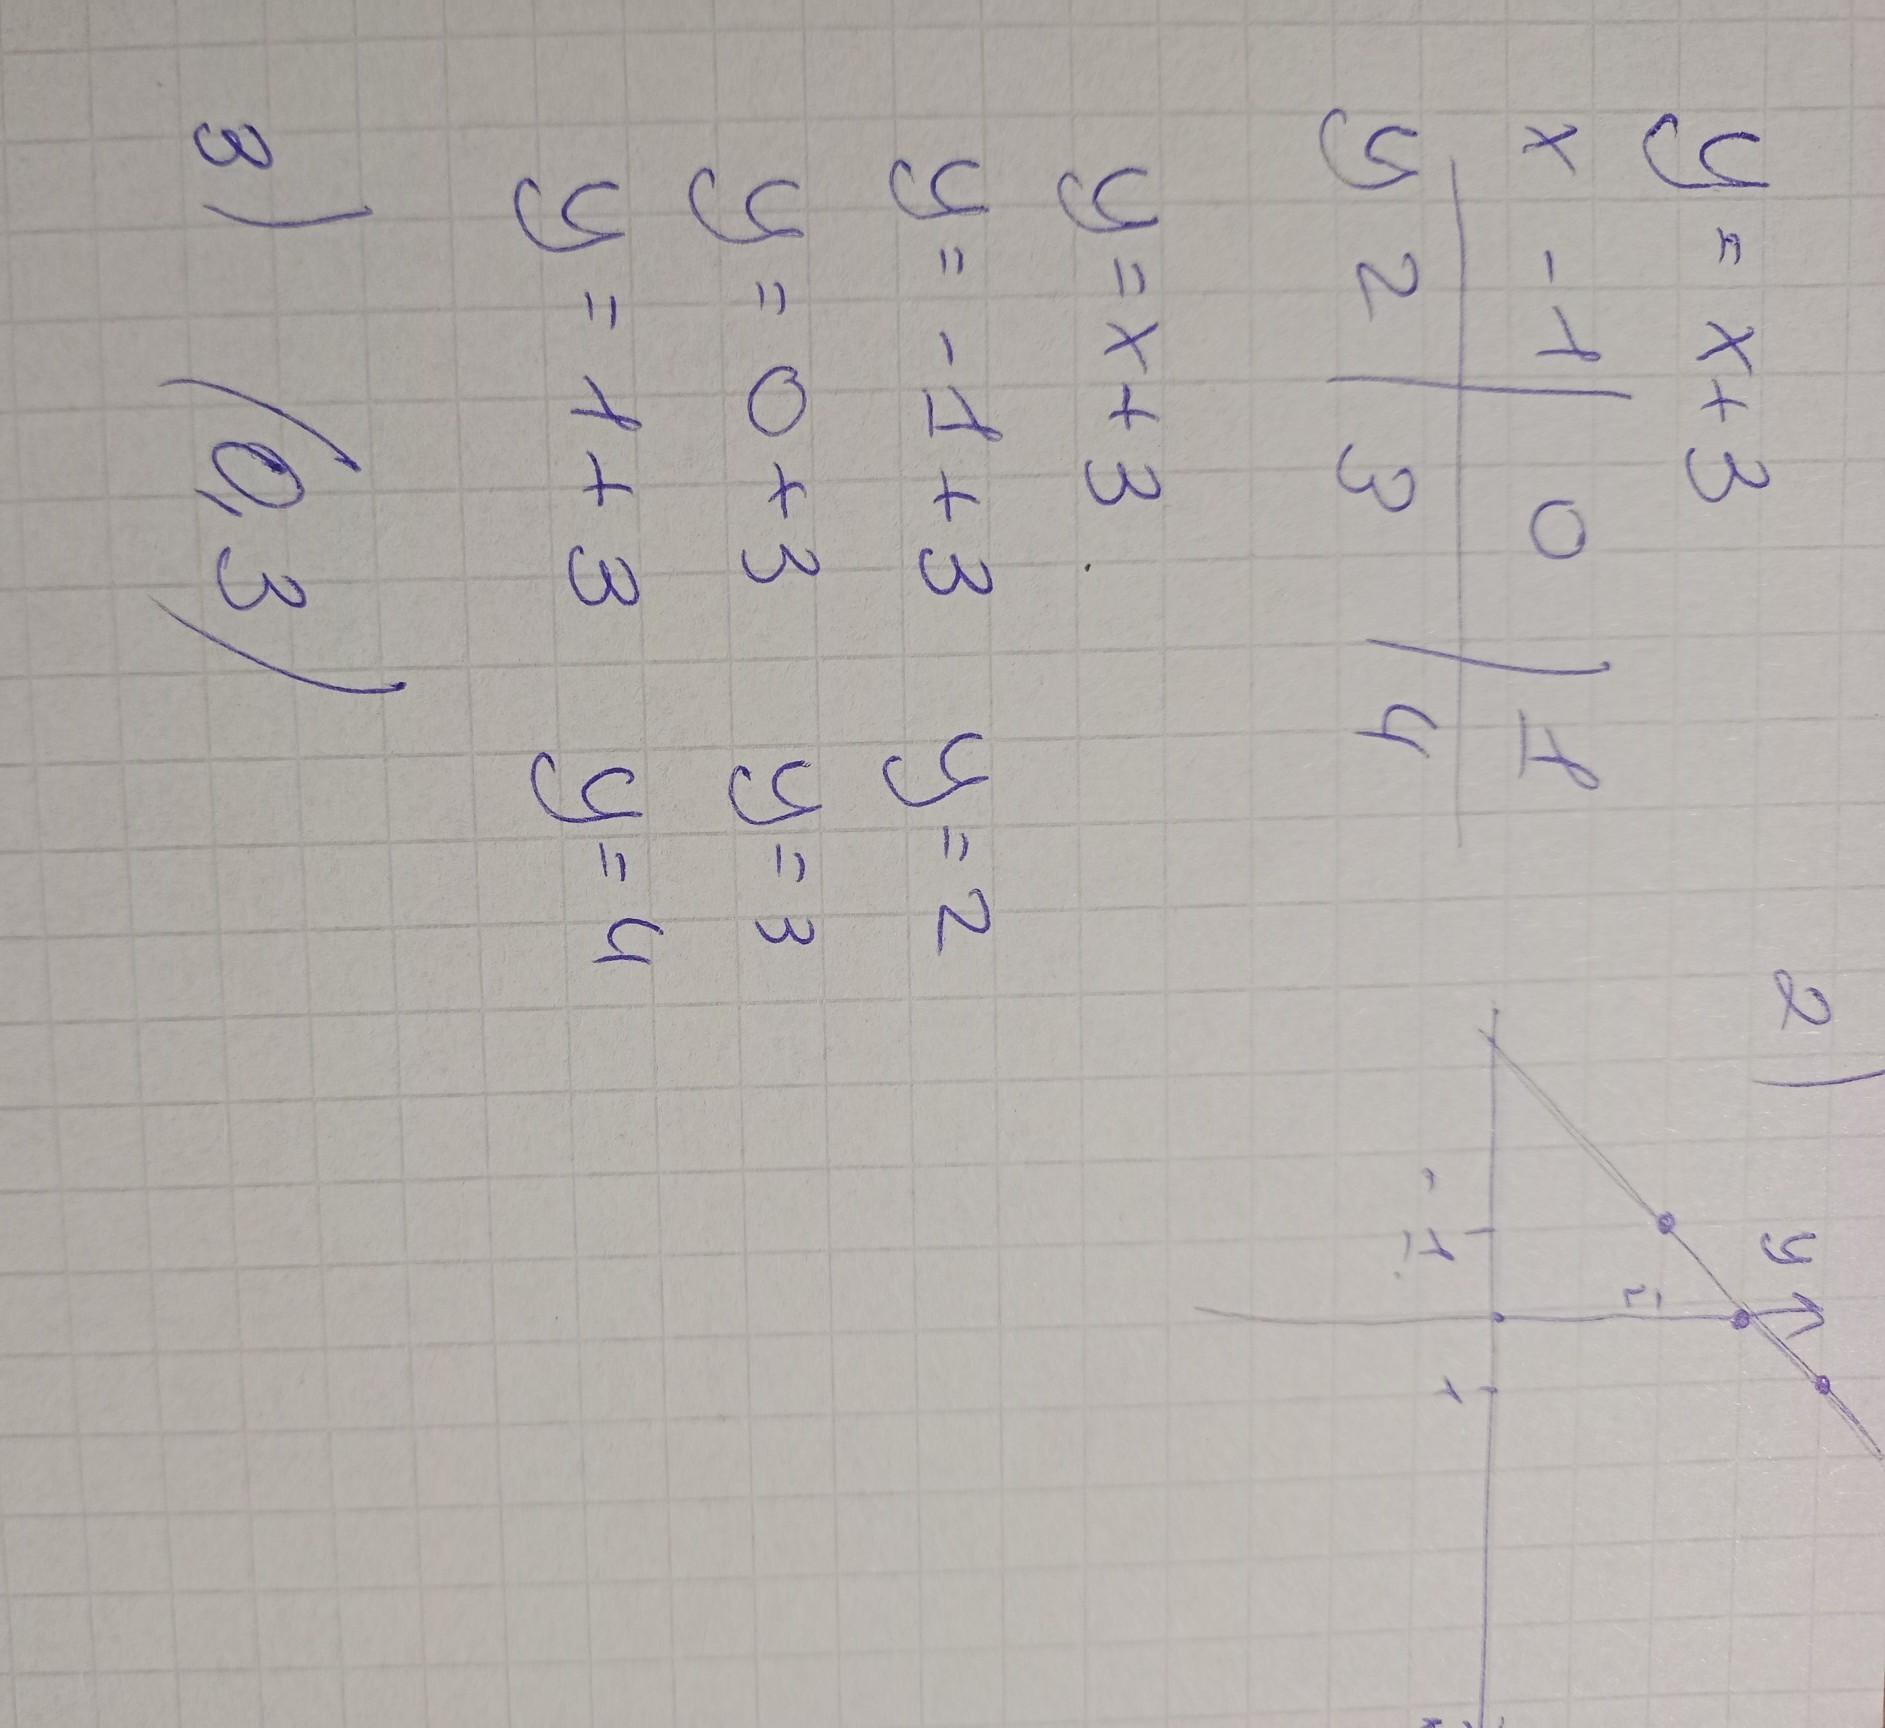 y = x + 3
x -1 0 1
y 2 3 4
y = x + 3
y = -1 + 3 y = 2
y = 0 + 3 y = 3
y = 1 + 3 y = 4
3) (0, 3)
2)
y
-1 1